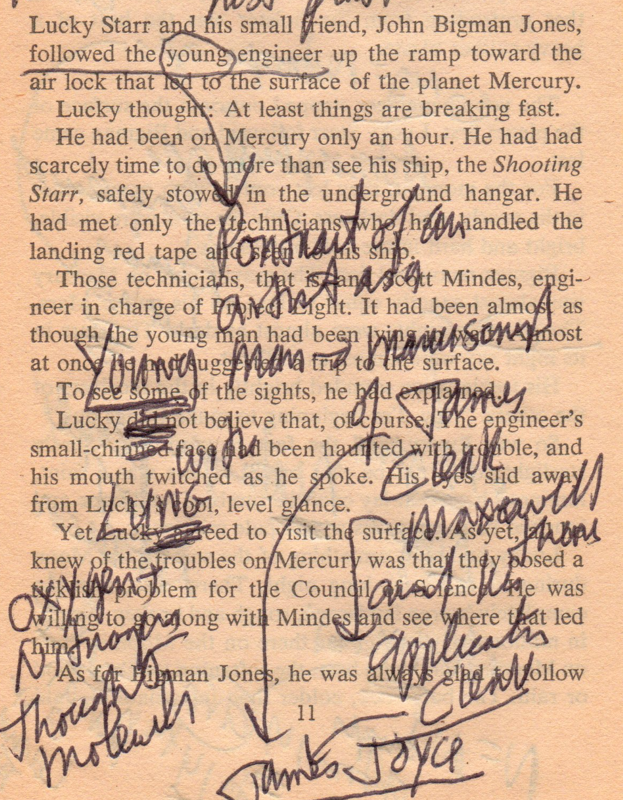 Lucky Starr and his small friend, John Bigman Jones,
followed the young engineer up the ramp toward the
air lock that led to the surface of the planet Mercury.
Lucky thought: At least things are breaking fast.
He had been on Mercury only an hour. He had had
scarcely time to do more than see his ship, the Shooting
Starr, safely stowed in the underground hangar. He
had met only the technicians who had handled the
landing red tape and seen to his ship.
Those technicians, that is, and Scott Mindes, engi-
neer in charge of Project Light. It had been almost as
though the young man had been lying in wait. Almost
at once he had suggested a trip to the surface.
To see some of the sights, he had explained.
Lucky did not believe that, of course. The engineer's
small-chinned face had been haunted with trouble, and
his mouth twitched as he spoke. His eyes slid away
from Lucky's cool, level glance.
Yet Lucky agreed to visit the surface. As yet, all he
knew of the troubles on Mercury was that they posed a
ticklish problem for the Council of Science. He was
willing to go along with Mindes and see where that led
him.
As for Bigman Jones, he was always glad to follow
11
Portrait of an
artist as a
Young man → manuscript
of James
Clerk
Maxwell
and his
Clerk
James Joyce
with
LUNG
Oxygen +
Nitrogen
thought
molecules